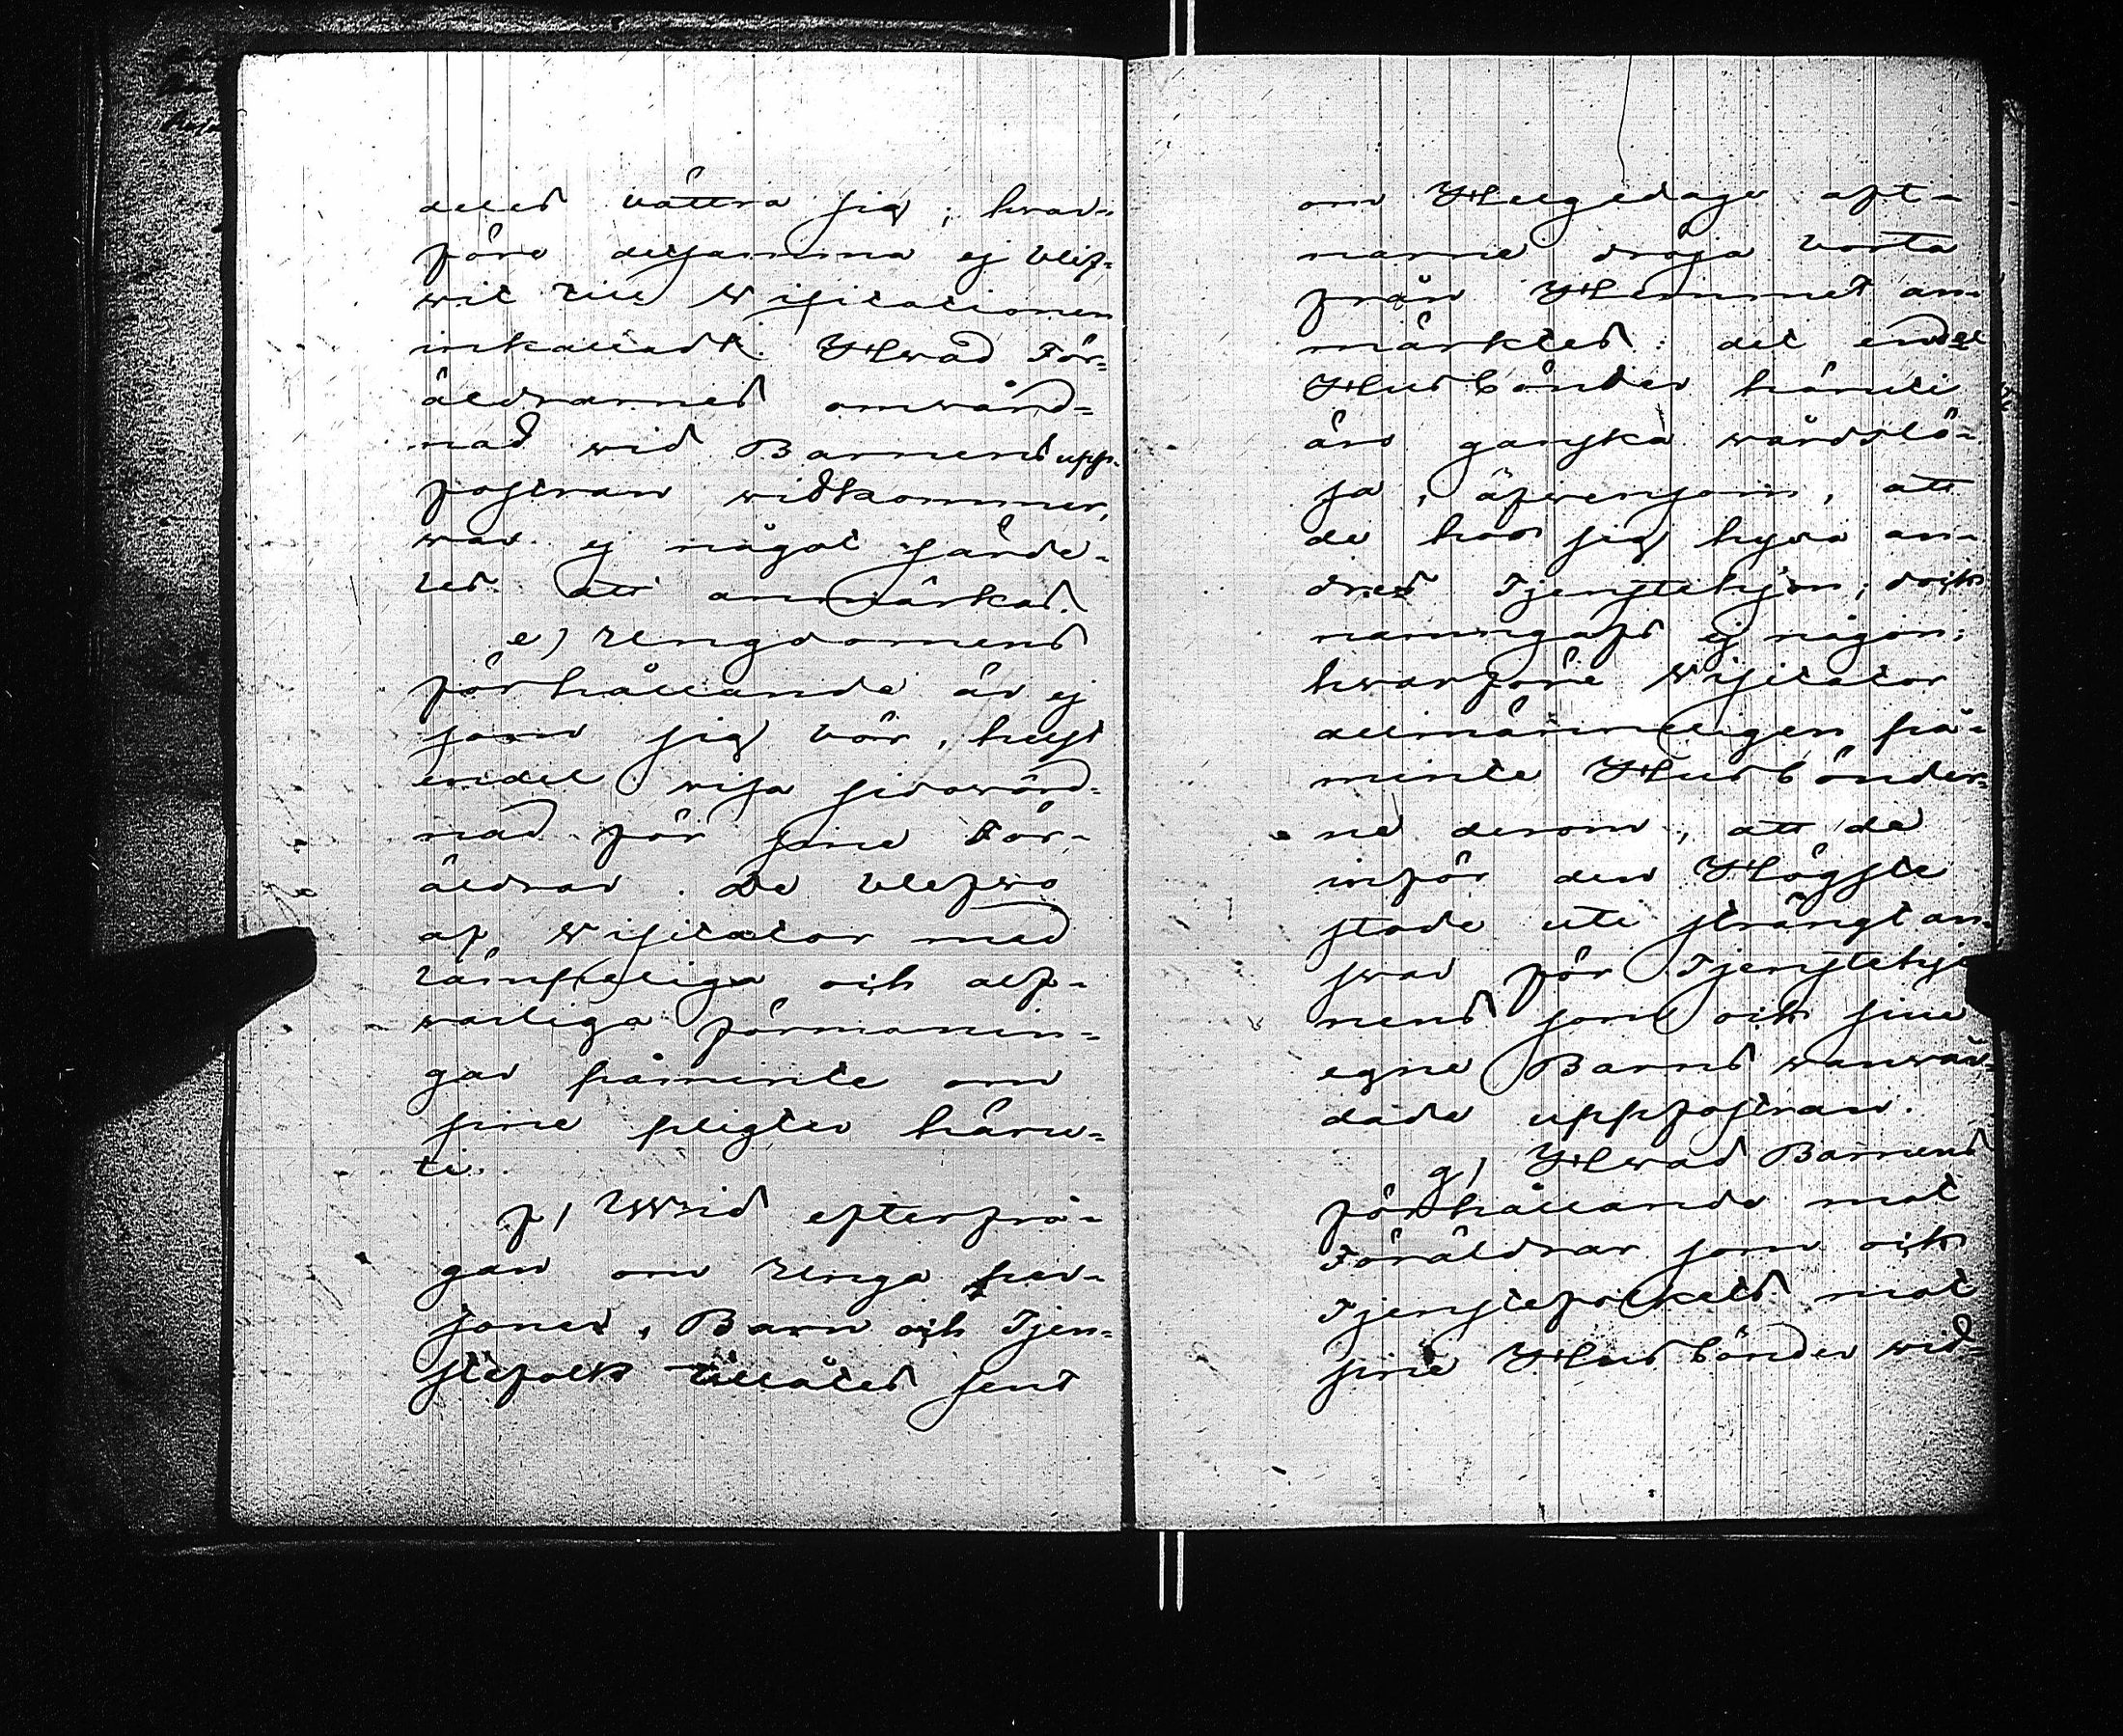 deles bättra sig; hwar-
före desamma ej blif-
wit till Wisitationen
inkallade. Hwad För-
äldrarnes omwård-
nad wid Barnens upp-
fostran widkommer,
war ej något särde-
les att anmärkas.
e) Ungdomens
förhållande är ej
som sig bör, helst
endel wisa sidowörd-
nad för sine För-
äldrar. De blefwo
af Wisitator med
lämpeliga och alf-
warliga förmanin-
gar påminte om
sine pligter häru-
ti.
f) Wid efterfrå-
gan om Unga per-
soner, Barn och Tjen-
stefolk tillåtes sent
om Helgedags aft-
narne dröja borta
från Hemmet an-
märktes: det endel
Husbönder häruti
äro ganska wårdslö-
sa, äfwensom, att
de hos sig hysa an-
dres Tjenstehjon; doch
namngafs ej någon;
hwarföre Wisitator
allmänneligen på-
minte Husbönder-
ne derom, att de
inför den Högste
stode ute strängt an-
swar för Tjenstehjo
nens som och sine
egne Barns wanwår-
dade uppfostran.
g) Hwad Barnens
förhållande mot
Föräldrar som och
Tjenstefolkets mot
sine Husbönder wid-